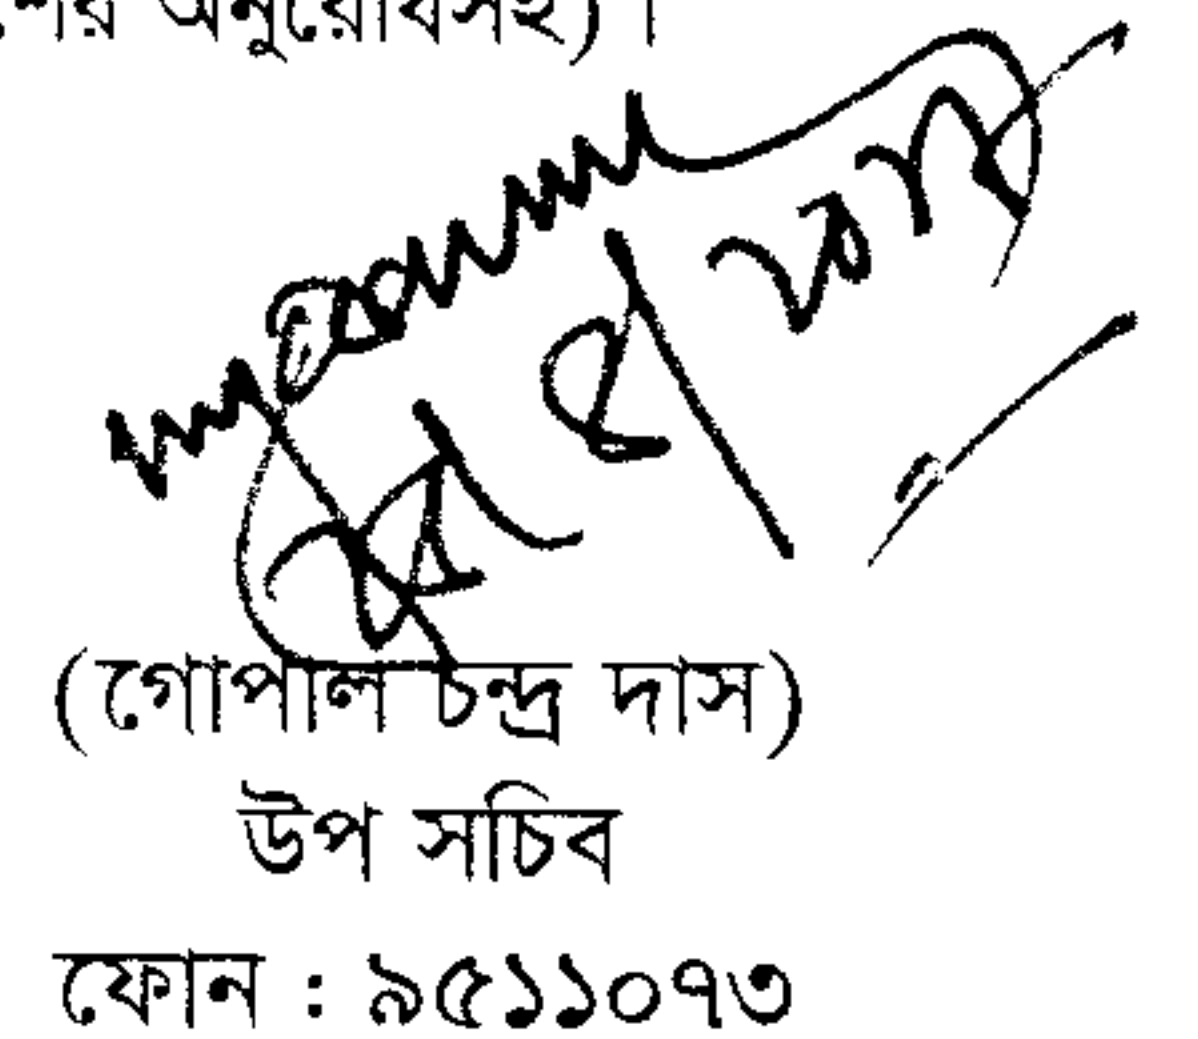 অনুরোধসহ)।
(গোপাল চন্দ্র দাস)
উপ সচিব
ফোন : ৯৫১১০৭৩